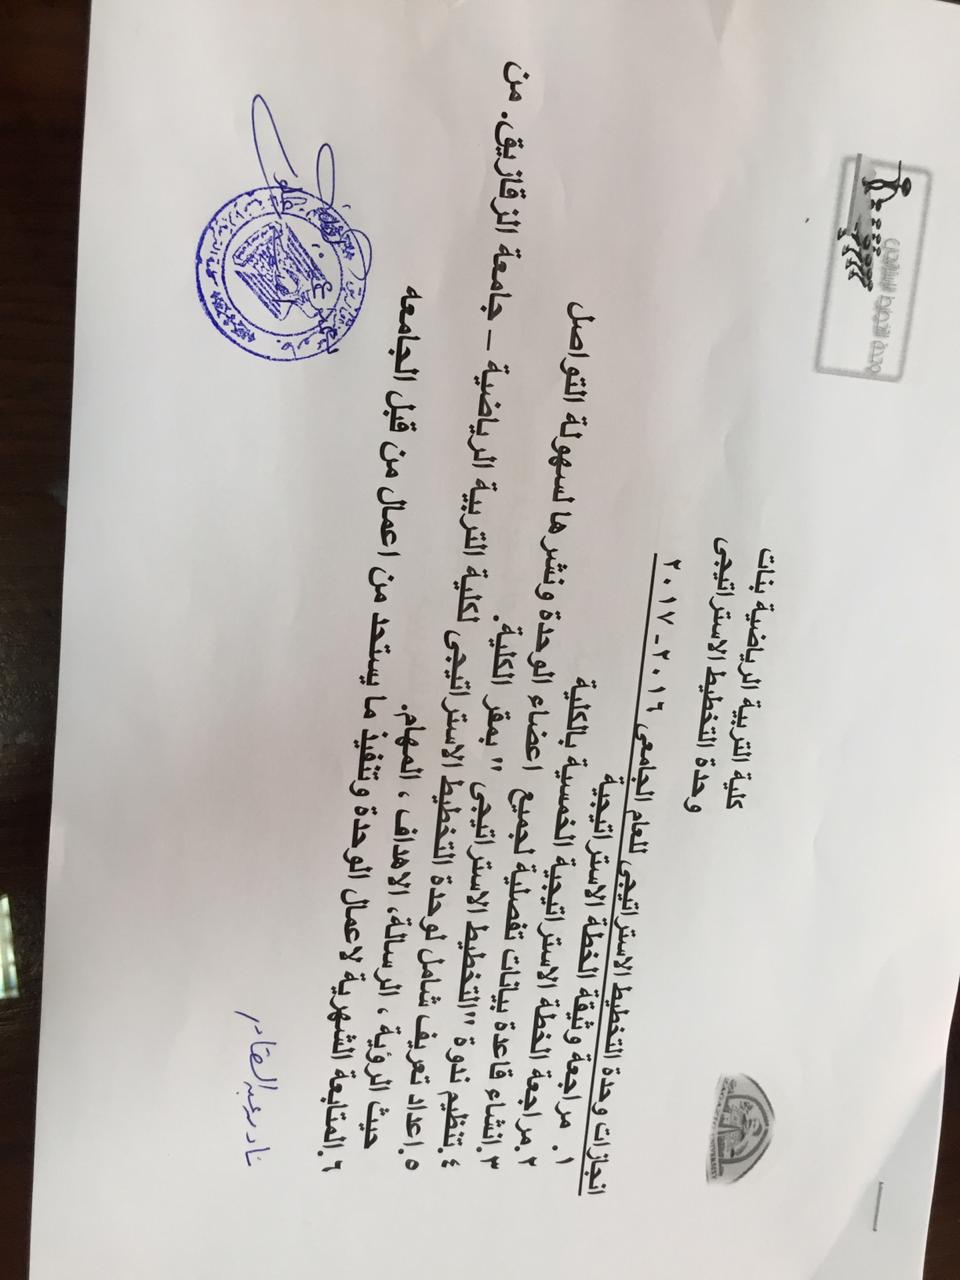 وحدة التخطيط الاستراتيجى
ZAGAZIG UNIVERSITY
كلية التربية الرياضية بنات
وحدة التخطيط الاستراتيجى
انجازات وحدة التخطيط الاستراتيجى للعام الجامعى ٢٠١٦-٢٠١٧
١. مراجعة وثيقة الخطة الاستراتيجية
٢.مراجعة الخطة الاستراتيجية الخمسية بالكلية
٣.إنشاء قاعدة بيانات تفصلية لجميع اعضاء الوحدة ونشرها لسهولة التواصل
٤.تنظيم ندوة "التخطيط الاستراتيجى" بمقر الكلية.
٥.اعداد تعريف شامل لوحدة التخطيط الاستراتيجى لكلية التربية الرياضية – جامعة الزقازيق. من
حيث الرؤية ، الرسالة، الاهداف ، المهام.
٦.المتابعة الشهرية لاعمال الوحدة وتنفيذ ما يستحد من اعمال من قبل الجامعه